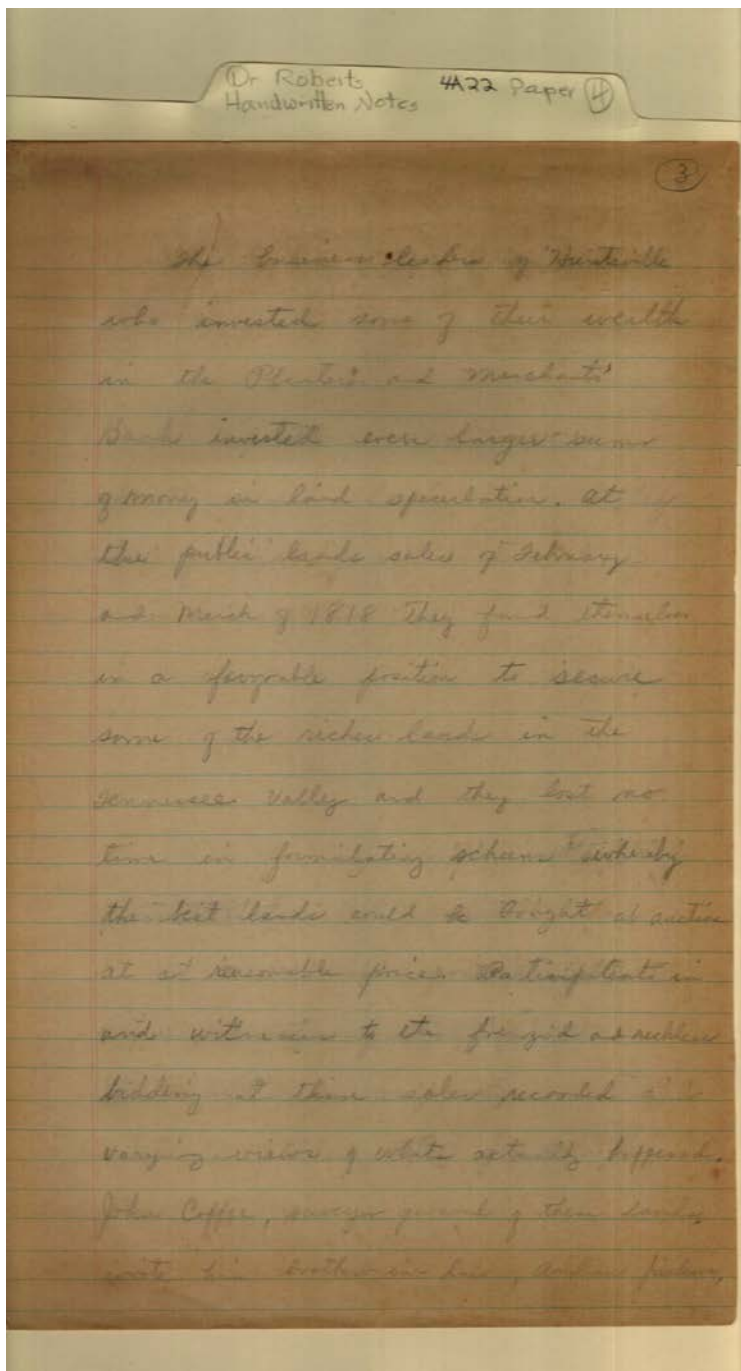 Dr Roberts 4A22 Paper 4
Handwritten Notes
3
The business leaders of Huntsville
who invested some of their wealth
in the Planters and Merchants'
Bank invested even larger sums
of money in land speculation. At
the public lands sales of February
and March of 1818 they found themselves
in a favorable position to secure
some of the richest lands in the
Tennessee Valley and they lost no
time in formulating schemes whereby
the best lands could be bought at auction
at a reasonable price. Participants in
and witnesses to the frenzied and reckless
bidding at these sales recorded
varying views of what actually happened.
John Coffee, surveyor general of these lands,
wrote his brother in law, Andrew Jackson,